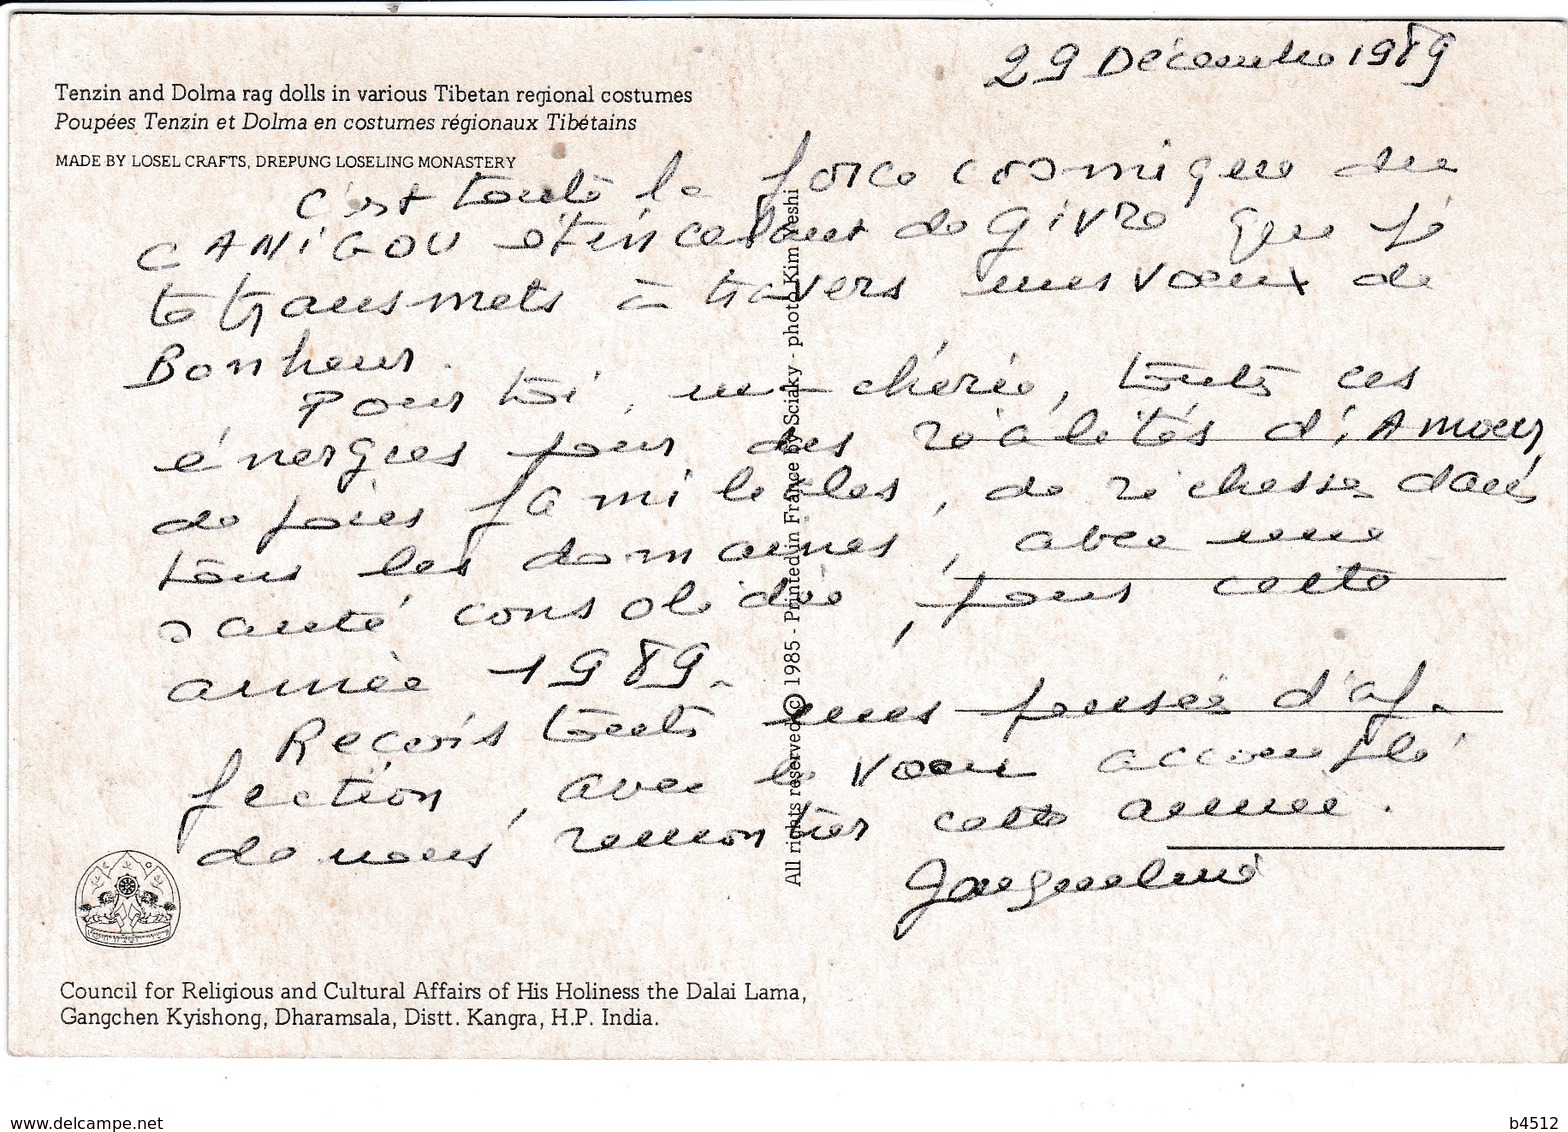 29 Décembre 1989
Tenzin and Dolma rag dolls in various Tibetan regional costumes
Poupées Tenzin et Dolma en costumes régionaux Tibétains
MADE BY LOSEL CRAFTS, DREPUNG LOSELING MONASTERY
C'est toute la force cosmique du
CANIGOU étincelant de Givre que je
te transmets à travers mes voeux de
Bonheur.
Pour toi, ma chérie, toutes ces
énergies pour des réalités d'Amour,
de joies familiales, de richesse dans
tous les domaines, avec une
santé consolidée, pour cette
année 1989.
Reçois toute mes pensée d'af-
fection, avec le voeu accompli
de nous remontrer cette année.
Jacqueline
All rights reserved © 1985 - Printed in France by Sciaky - photo Kim Yeshi
Council for Religious and Cultural Affairs of His Holiness the Dalai Lama,
Gangchen Kyishong, Dharamsala, Distt. Kangra, H.P. India.
www.delcampe.net
b4512